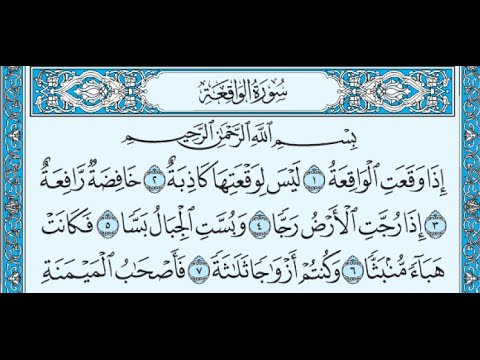 سُورَةُ الوَاقِعَةِ
بِسْمِ اللَّهِ الرَّحْمَٰنِ الرَّحِيمِ
إِذَا وَقَعَتِ الْوَاقِعَةُ ١ لَيْسَ لِوَقْعَتِهَا كَاذِبَةٌ ٢ خَافِضَةٌ رَّافِعَةٌ
٣ إِذَا رُجَّتِ الْأَرْضُ رَجًّا ٤ وَبُسَّتِ الْجِبَالُ بَسًّا ٥ فَكَانَتْ
هَبَاءً مُّنبَثًّا ٦ وَكُنتُمْ أَزْوَاجًا ثَلَاثَةً ٧ فَأَصْحَابُ الْمَيْمَنَةِ